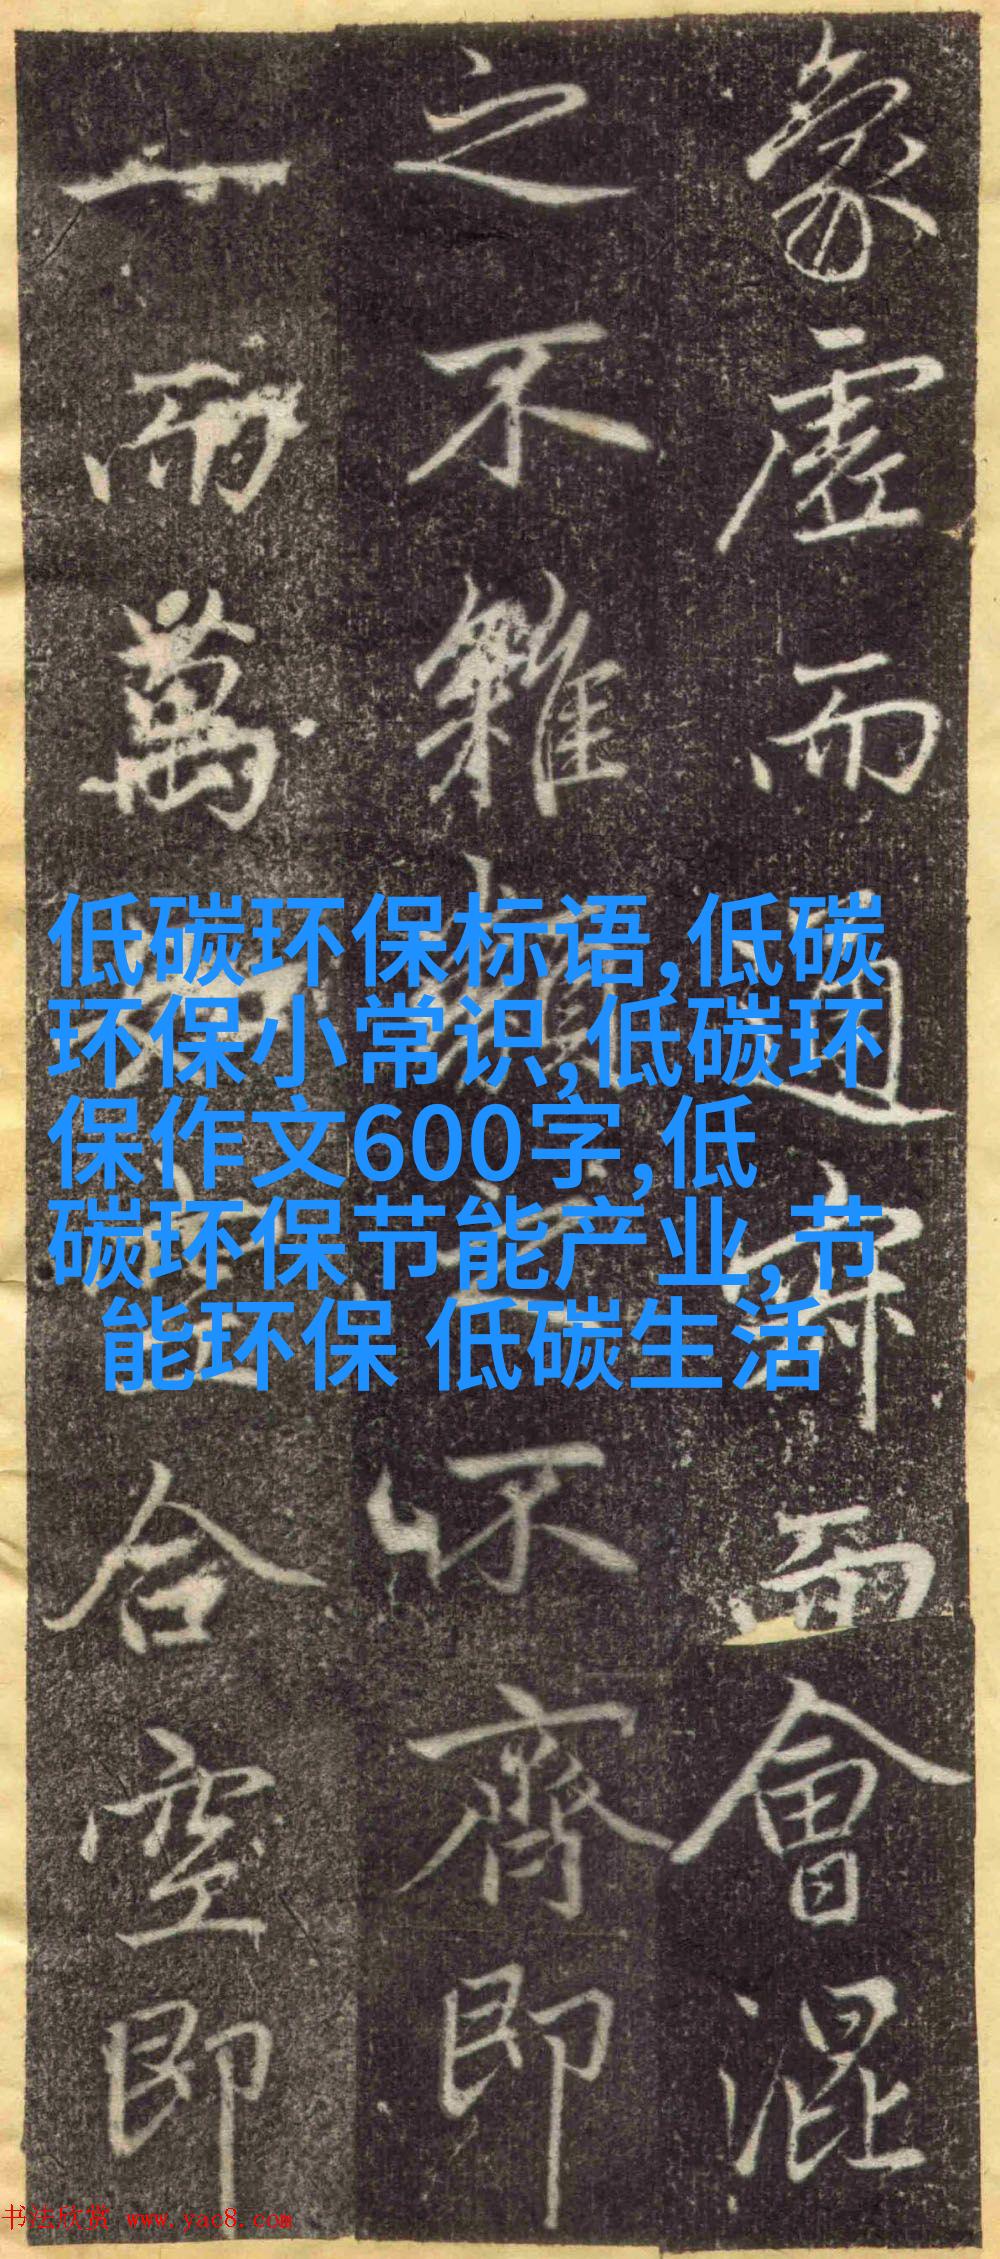 象虛而通寂而會混
之不雜類之不齊即
一而萬空合空即
低碳环保标语,低碳
环保小常识,低碳环
保作文600字,低
碳环保节能产业,节
能环保 低碳生活
书法欣赏 www.yac8.com